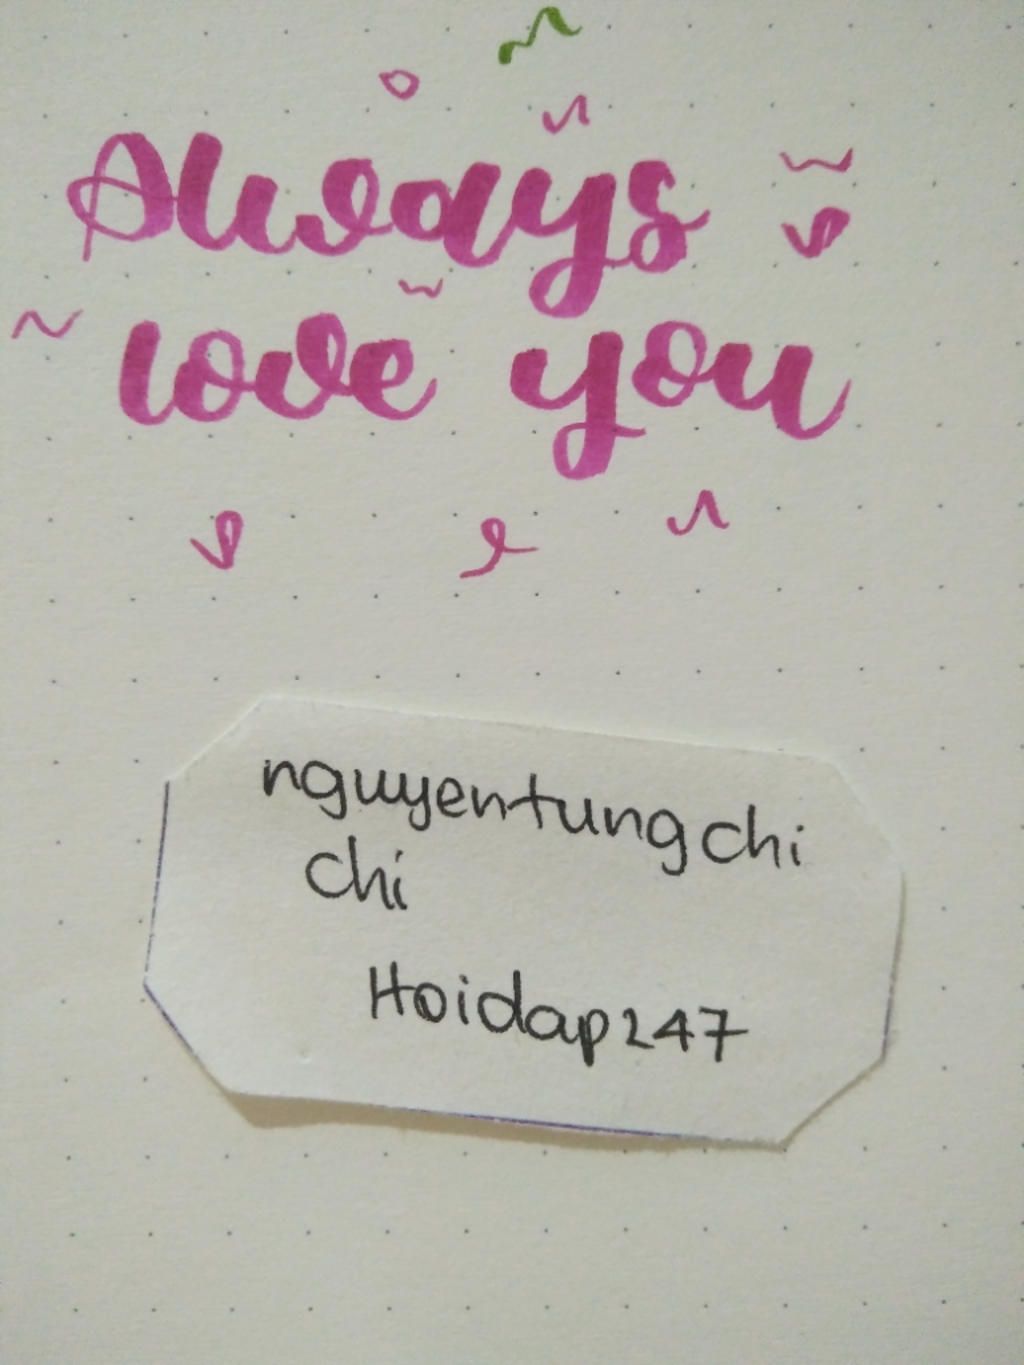 Always
love you
nguyentungchi
chi
Hoidap247